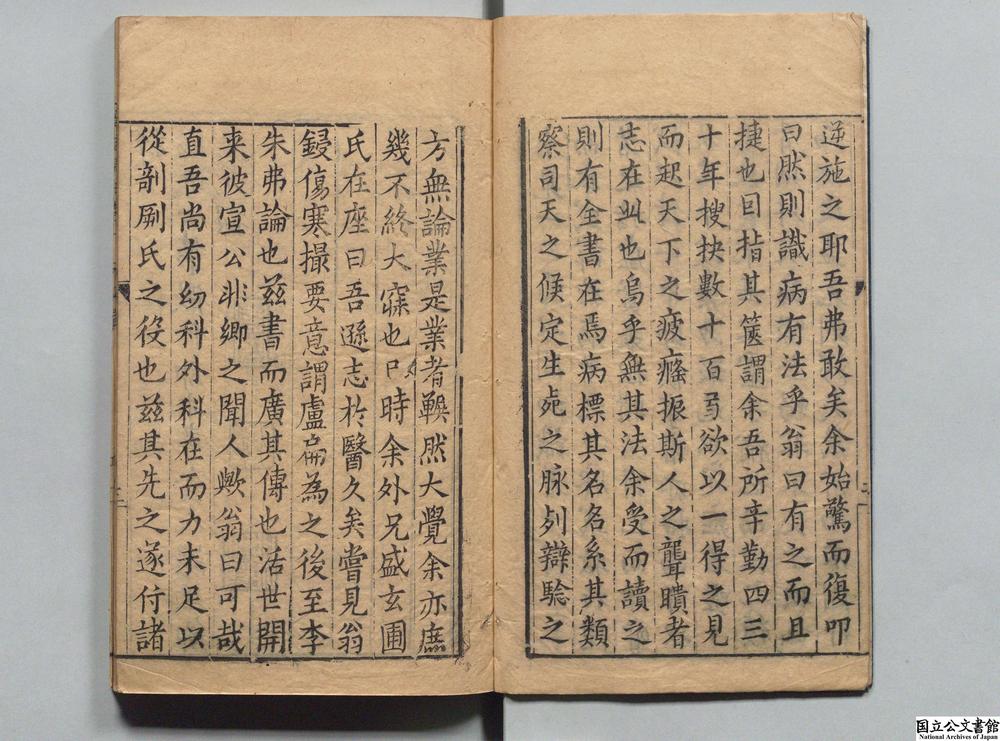 逆施之耶吾弗敢矣余始驚而復叩
曰然則識病有法乎翁曰有之而且
捷也因指其篋謂余吾所辛勤四三
十年搜抉數十百㢧欲以一得之見
而起天下之疲癃振斯人之聾聵者
志在此也烏乎無其法余受而讀之
則有全書在焉病標其名名系其類
察司天之候定生死之脉列辯騐之
方無論業是業者䩄然大覺余亦庶
幾不終大寐也已時余外兄盛玄圃
氏在座曰吾遜志於醫久矣嘗見翁
鋟傷寒撮要意謂盧扁為之後至李
朱弗論也兹書而廣其傳也活世開
来彼宣公非卿之聞人歟翁曰可哉
直吾尚有幼科外科在而力未足以
從剞劂氏之役也兹其先之遂付諸
国立公文書館
National Archives of Japan